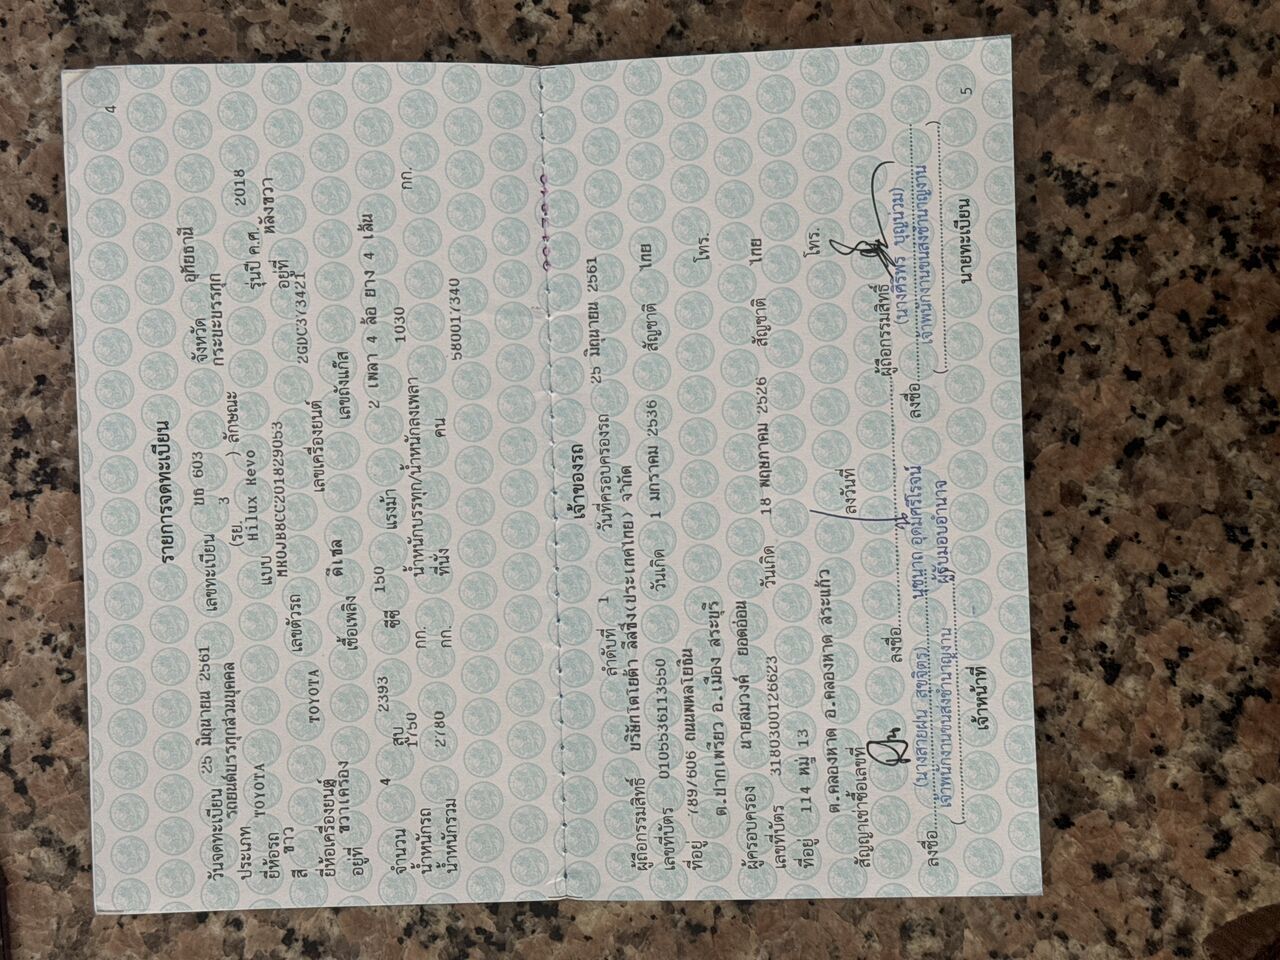 4
รายการจดทะเบียน
วันจดทะเบียน 25 มิถุนายน 2561 เลขทะเบียน บธ 603 จังหวัด อุทัยธานี
ประเภท รถยนต์บรรทุกส่วนบุคคล (รย. 3 ) ลักษณะ กระบะบรรทุก
ยี่ห้อรถ TOYOTA แบบ Hilux Revo รุ่นปี ค.ศ. 2018
สี ขาว เลขตัวรถ MR0JB8CC201829053 อยู่ที่ หลังขวา
ยี่ห้อเครื่องยนต์ TOYOTA เลขเครื่องยนต์ 2GDC373421
อยู่ที่ ขวาเครื่อง เชื้อเพลิง ดีเซล เลขถังแก๊ส
จำนวน 4 สูบ 2393 ซีซี 150 แรงม้า 2 เพลา 4 ล้อ ยาง 4 เส้น
น้ำหนักรถ 1750 กก. น้ำหนักบรรทุก/น้ำหนักลงเพลา 1030 กก.
น้ำหนักรวม 2780 กก. ที่นั่ง คน 580017340
เจ้าของรถ
ลำดับที่ 1 วันที่ครอบครองรถ 25 มิถุนายน 2561
ผู้ถือกรรมสิทธิ์ บริษัทโตโยต้า ลีสซิ่ง(ประเทศไทย) จำกัด
เลขที่บัตร 0105536113550 วันเกิด 1 มกราคม 2536 สัญชาติ ไทย
ที่อยู่ 789/606 ถนนพหลโยธิน โทร.
ต.ปากเพรียว อ.เมือง สระบุรี
ผู้ครอบครอง นายสมวงค์ ยอดอ่อน
เลขที่บัตร 3180300126623 วันเกิด 18 พฤษภาคม 2526 สัญชาติ ไทย
ที่อยู่ 114 หมู่ 13 โทร.
ต.คลองหาด อ.คลองหาด สระแก้ว
สัญญาเช่าซื้อเลขที่ ลงวันที่
ลงชื่อ ผู้ถือกรรมสิทธิ์
นุชนาถ อุดมศรีโรจน์
ผู้รับมอบอำนาจ
ลงชื่อ
(นางสายฝน สุขจิตร)
เจ้าพนักงานขนส่งชำนาญงาน
เจ้าหน้าที่
ลงชื่อ
(นางศิริพร บุญน่วม)
เจ้าพนักงานขนส่งชำนาญงาน
นายทะเบียน
5